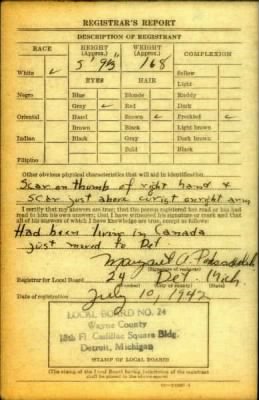 REGISTRAR'S REPORT
DESCRIPTION OF REGISTRANT
RACE HEIGHT (Approx.) WEIGHT (Approx.) COMPLEXION
5' 9½" 168
White ✓ EYES HAIR Sallow
Light
Negro Blue Blonde Ruddy
Gray ✓ Red Dark
Oriental Hazel Brown ✓ Freckled ✓
Brown Black Light brown
Indian Black Gray Dark brown
Bald Black
Filipino
Other obvious physical characteristics that will aid in identification
Scar on thumb of right hand &
scar just above wrist on right arm
I certify that my answers are true; that the person registered has read or has had
read to him his own answers; that I have witnessed his signature or mark and that
all of his answers of which I have knowledge are true, except as follows:
Had been living in Canada
just moved to Det.
Margaret A.
(Signature of registrar)
Registrar for Local Board 24 Det. Mich
Date of registration July 10, 1942
LOCAL BOARD NO. 24
Wayne County
13th Fl Cadillac Square Bldg.
Detroit, Michigan
STAMP OF LOCAL BOARD
(The stamp of the Local Board having jurisdiction of the registrant
shall be placed in the above space)